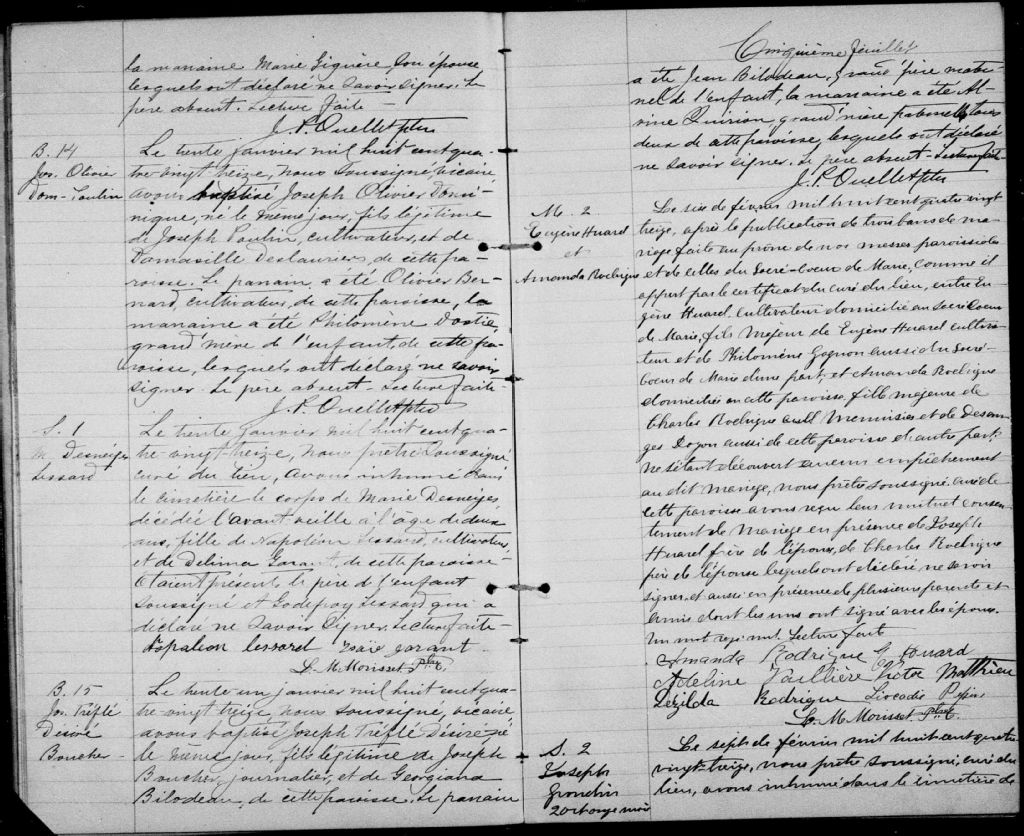 la marraine Marie Giguère son épouse
lesquels ont déclaré ne savoir signer. Le
père absent. Lecture faite
J. P. Ouellet Ptre
B. 14
Jos. Olivier
Dom. Poulin
Le trente janvier mil huit cent qua-
tre vingt treize, nous soussigné, vicaire
avons baptisé Joseph Olivier Domi-
nique, né le même jour, fils légitime
de Joseph Poulin, cultivateur, et de
Deslauriers, de cette pa-
roisse. Le parrain a été Olivier Ber-
nard, cultivateur, de cette paroisse, la
marraine a été Philomène Dostie,
grand'mère de l'enfant, de cette pa-
roisse, lesquels ont déclaré ne savoir
signer. Le père absent. Lecture faite.
J. P. Ouellet Ptre
S. 1
M. Desneiges
Lessard
Le trente janvier mil huit cent qua-
tre vingt treize, nous prêtre soussigné
curé du lieu, avons inhumé dans
le cimetière le corps de Marie Desneiges
décédée l'avant veille à l'âge de deux
ans, fille de Napoléon Lessard, cultivateur,
et de Delima Garant, de cette paroisse
Etaient présent, le père de l'enfant
soussigné et Godefroy Lessard qui a
déclaré ne savoir signer. Lecture faite
Napoleon lessard Isaïe garant
L. M. Morisset Ptre C.
B. 15
Jos. Tréflé
Désiré
Boucher
Le trente un janvier mil huit cent qua-
tre vingt treize, nous soussigné, vicaire
avons baptisé Joseph Tréflé Désiré né
le même jour, fils légitime de Joseph
Boucher, journalier, et de Georgiana
Bilodeau, de cette paroisse. Le parrain
Cinquième feuillet
a été Jean Bilodeau, grand'père mater-
nel de l'enfant, la marraine a été Al-
vine Quirion, grand'mère paternelle tous
deux de cette paroisse, lesquels ont déclaré
ne savoir signer. Le père absent. Lecture faite
J. P. Ouellet Ptre
M. 2
Eugène Huard
et
Amanda Rodrigue
Le six de février mil huit cent quatre vingt
treize, après la publication de trois bans de ma-
riage faite au prône de nos messes paroissiales
et de celles du Sacré-Coeur de Marie, comme il
appert par le certificat du curé du lieu, entre Eu-
gène Huard, cultivateur domicilié au Sacré Coeur
de Marie, fils majeur de Eugène Huard cultiva-
teur et de Philomène Gagnon aussi du Sacré-
Coeur de Marie d'une part; et Amanda Rodrigue
domiciliée en cette paroisse, fille majeure de
Charles Rodrigue Menuisier et de Desan-
ges aussi de cette paroisse d'autre part:
ne s'étant découvert aucun empêchement
au dit mariage, nous prêtre soussigné curé de
cette paroisse avons reçu leur mutuel consen-
tement de mariage en présence de Joseph
Huard frère de l'époux, de Charles Rodrigue
père de l'épouse lesquels ont déclaré ne savoir
signer, et aussi en présence de plusieurs parents et
amis dont les uns ont signé avec les époux.
Un mot rayé nul. Lecture fait
Amanda Rodrigue E. Houard
Adeline Vaillière Victor Matthieu
Lézilda Rodrigue Liocadie Pepin
L. M. Morisset Ptre C.
S. 2
Joseph
Grondin
20 et onze mois
Le sept de février mil huit cent quatre
vingt-treize, nous prêtre soussigné, curé du
lieu, avons inhumé dans le cimetière de